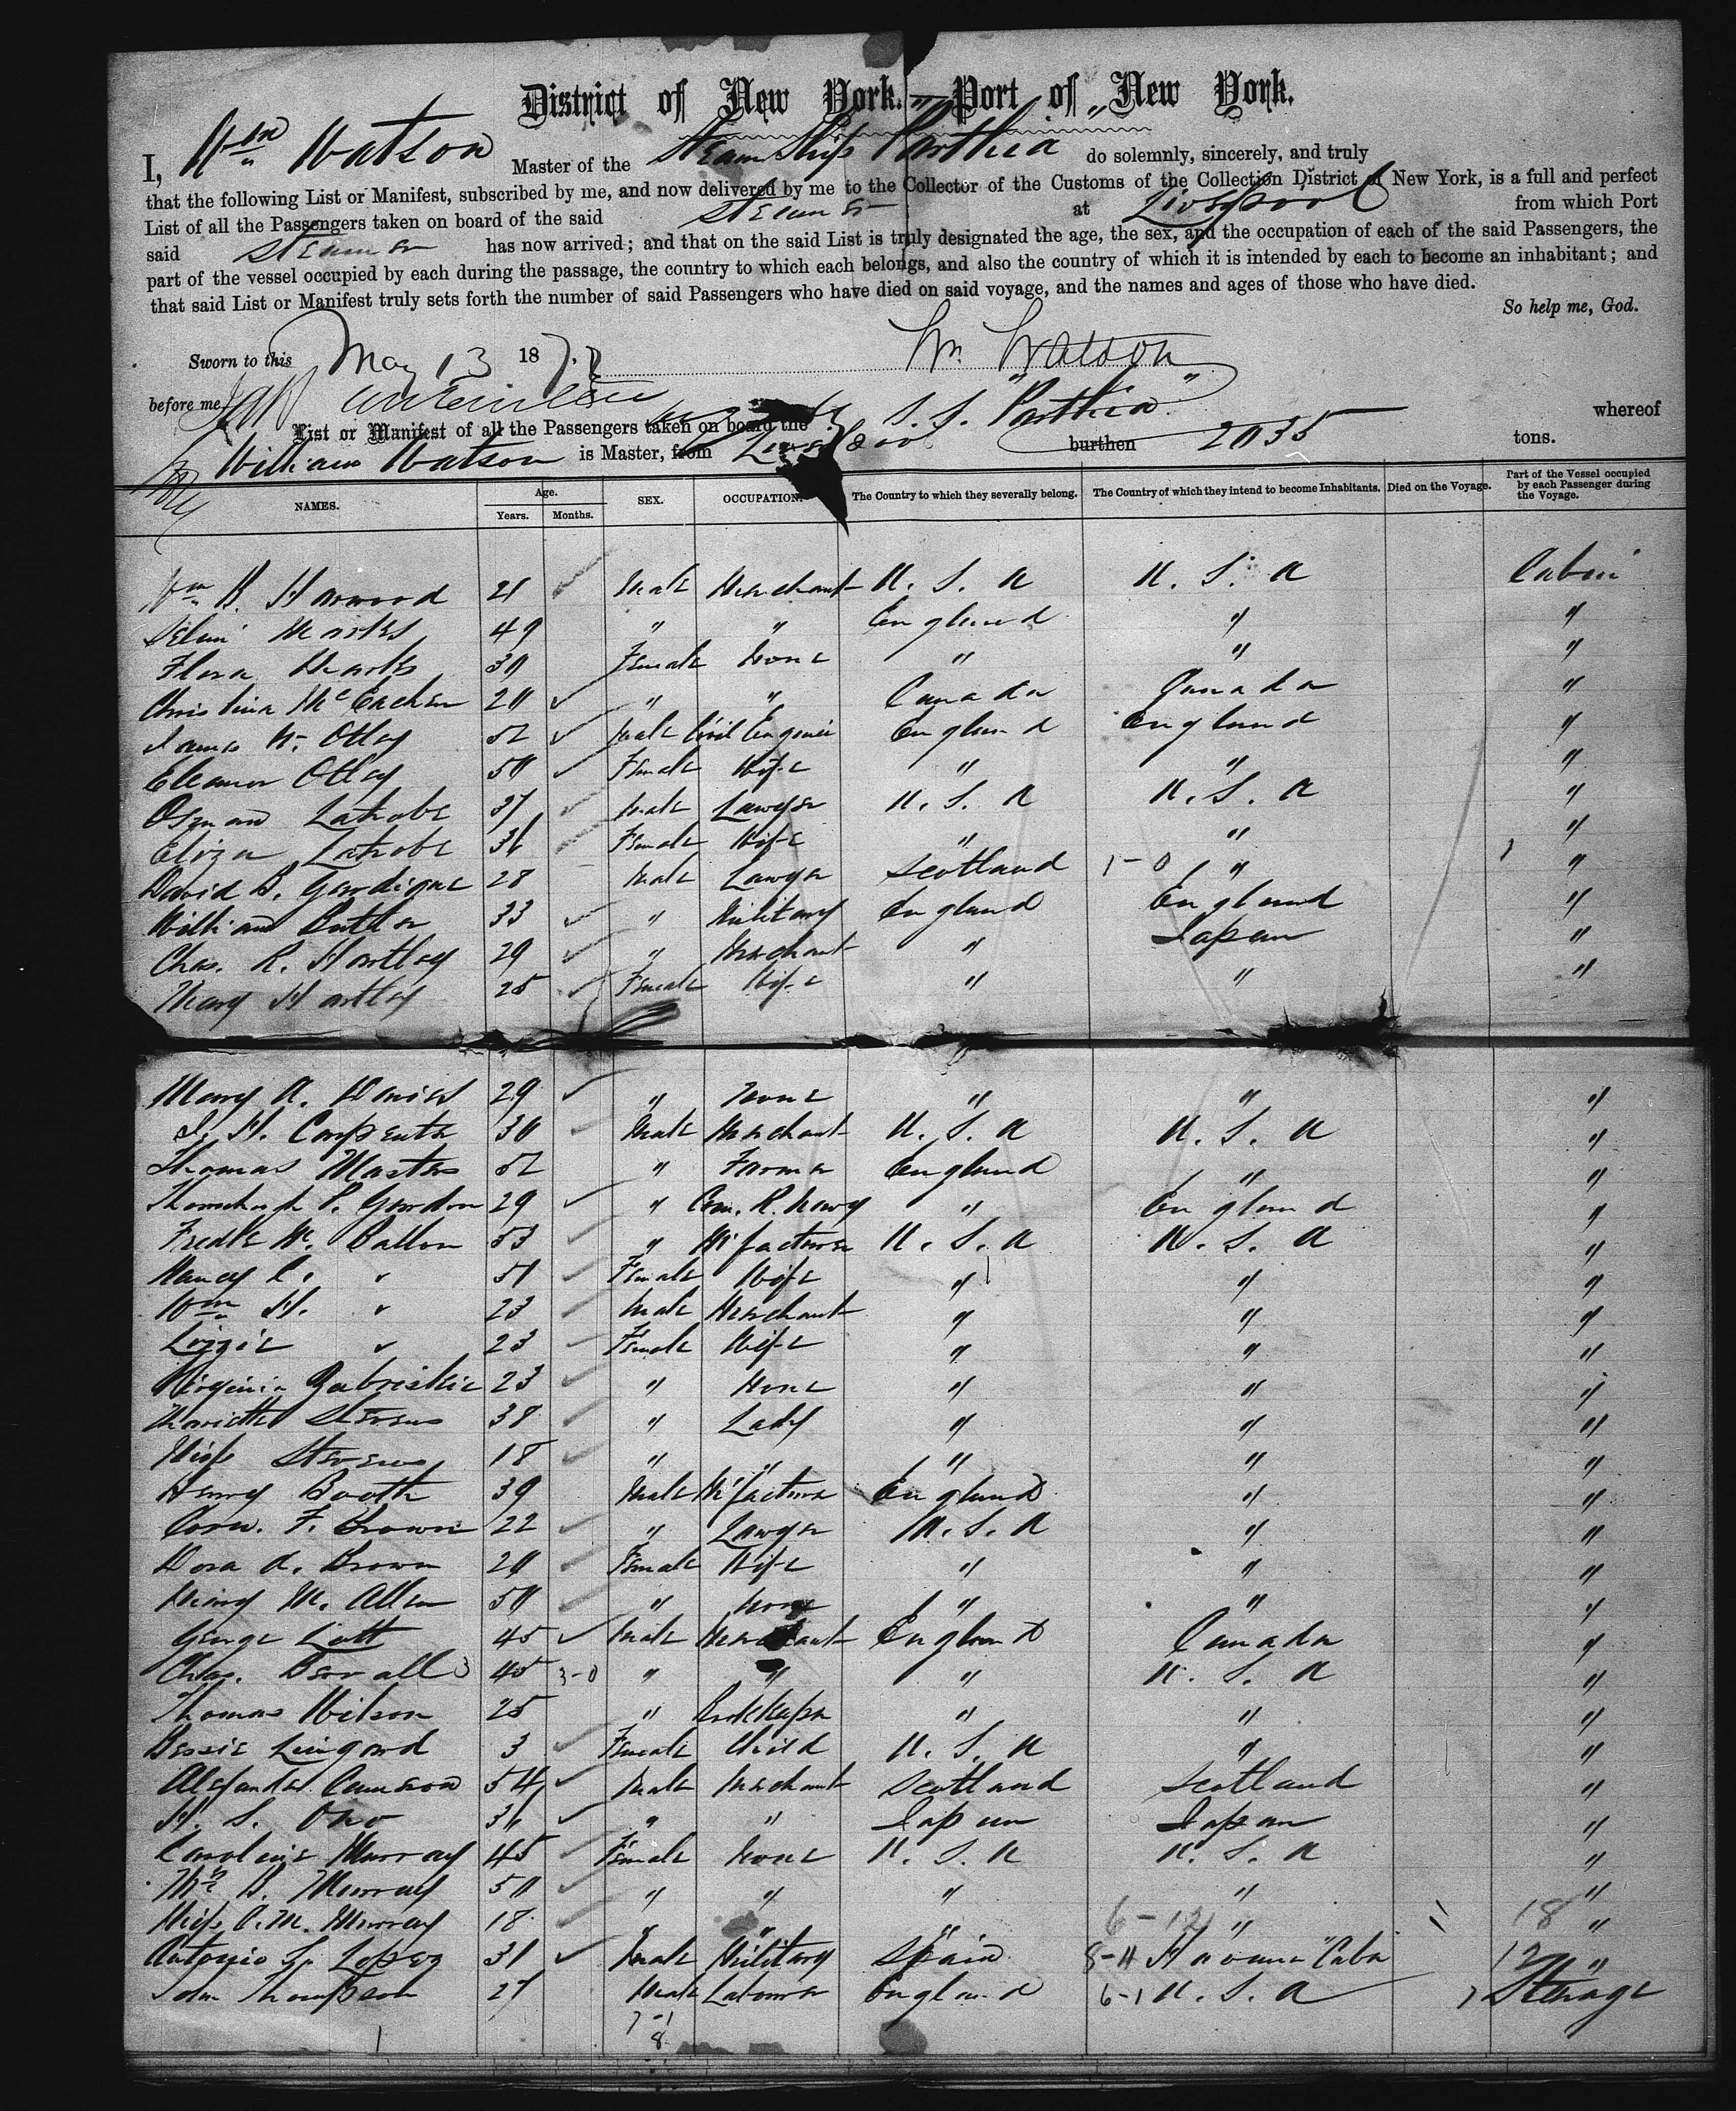 District of New York.—Port of New York.
I, Wm Watson Master of the Steam Ship "Parthia" do solemnly, sincerely, and truly
that the following List or Manifest, subscribed by me, and now delivered by me to the Collector of the Customs of the Collection District of New York, is a full and perfect
List of all the Passengers taken on board of the said Steamer at Liverpool from which Port
said Steamer has now arrived; and that on the said List is truly designated the age, the sex, and the occupation of each of the said Passengers, the
part of the vessel occupied by each during the passage, the country to which each belongs, and also the country of which it is intended by each to become an inhabitant; and
that said List or Manifest truly sets forth the number of said Passengers who have died on said voyage, and the names and ages of those who have died.
So help me, God.
Sworn to this May 13 187 Wm. Watson
before me
List or Manifest of all the Passengers taken on board the S.S. "Parthia" whereof
William Watson is Master, from Liverpool burthen 2035 tons.
NAMES. Age. Years. Months. SEX. OCCUPATION. The Country to which they severally belong. The Country of which they intend to become Inhabitants. Died on the Voyage. Part of the Vessel occupied by each Passenger during the Voyage.
Wm B. Harwood 21 Male Merchant U.S.A U.S.A Cabin
Marks 49 " " England " "
Flora Marks 30 Female None " " "
Christina McEachern 20 " " Canada Canada "
James W. Otley 52 Male Civil Engineer England England "
Eleanor Otley 50 Female Wife " " "
Osmand Latrobe 37 Male Lawyer U.S.A U.S.A "
Eliza Latrobe 36 Female Wife " " "
David B. 28 Male Lawyer Scotland 1-0 " "
William Butler 33 " Military England England "
Chas. R. Hartley 29 " Merchant " Japan "
Mary Hartley 25 Female Wife " " "
Mary A. Davies 29 " None " " "
J. H. Carpenter 30 Male Merchant U.S.A U.S.A "
Thomas Masters 52 " Farmer England " "
P. Gordon 29 " Com. R. Navy " England "
Fredk M. Ballou 53 " M'facturer U.S.A U.S.A "
Nancy C. " 51 Female Wife " " "
Wm H. " 23 Male Merchant " " "
Lizzie " 23 Female Wife " " "
Virginia Zabriskie 23 " None " " "
Mariette Stevens 38 " Lady " " "
Miss Stevens 18 " " " " "
Henry Booth 39 Male M'facturer England " "
Corn. F. Brown 22 " Lawyer U.S.A " "
Dora A. Brown 20 Female Wife " " "
M. Allen 50 " None " " "
George Lott 45 Male Merchant England Canada "
Chas. 45 3-0 " " " U.S.A "
Thomas Wilson 25 " Bookkeeper " " "
Bessie Lingard 3 Female Child U.S.A " "
Alexander Cameron 54 Male Merchant Scotland Scotland "
H. S. Ono 31 " " Japan Japan "
Caroline Murray 45 Female None U.S.A U.S.A "
Mrs B. Murray 50 " " " " "
Miss C. M. Murray 18 " " " 6-12 " 18 "
Antonio G. Lopez 31 Male Military Spain 8-11 Havana Cuba 12 "
John Thompson 27 Male Labourer England 6-1 U.S.A Steerage
7-1
8